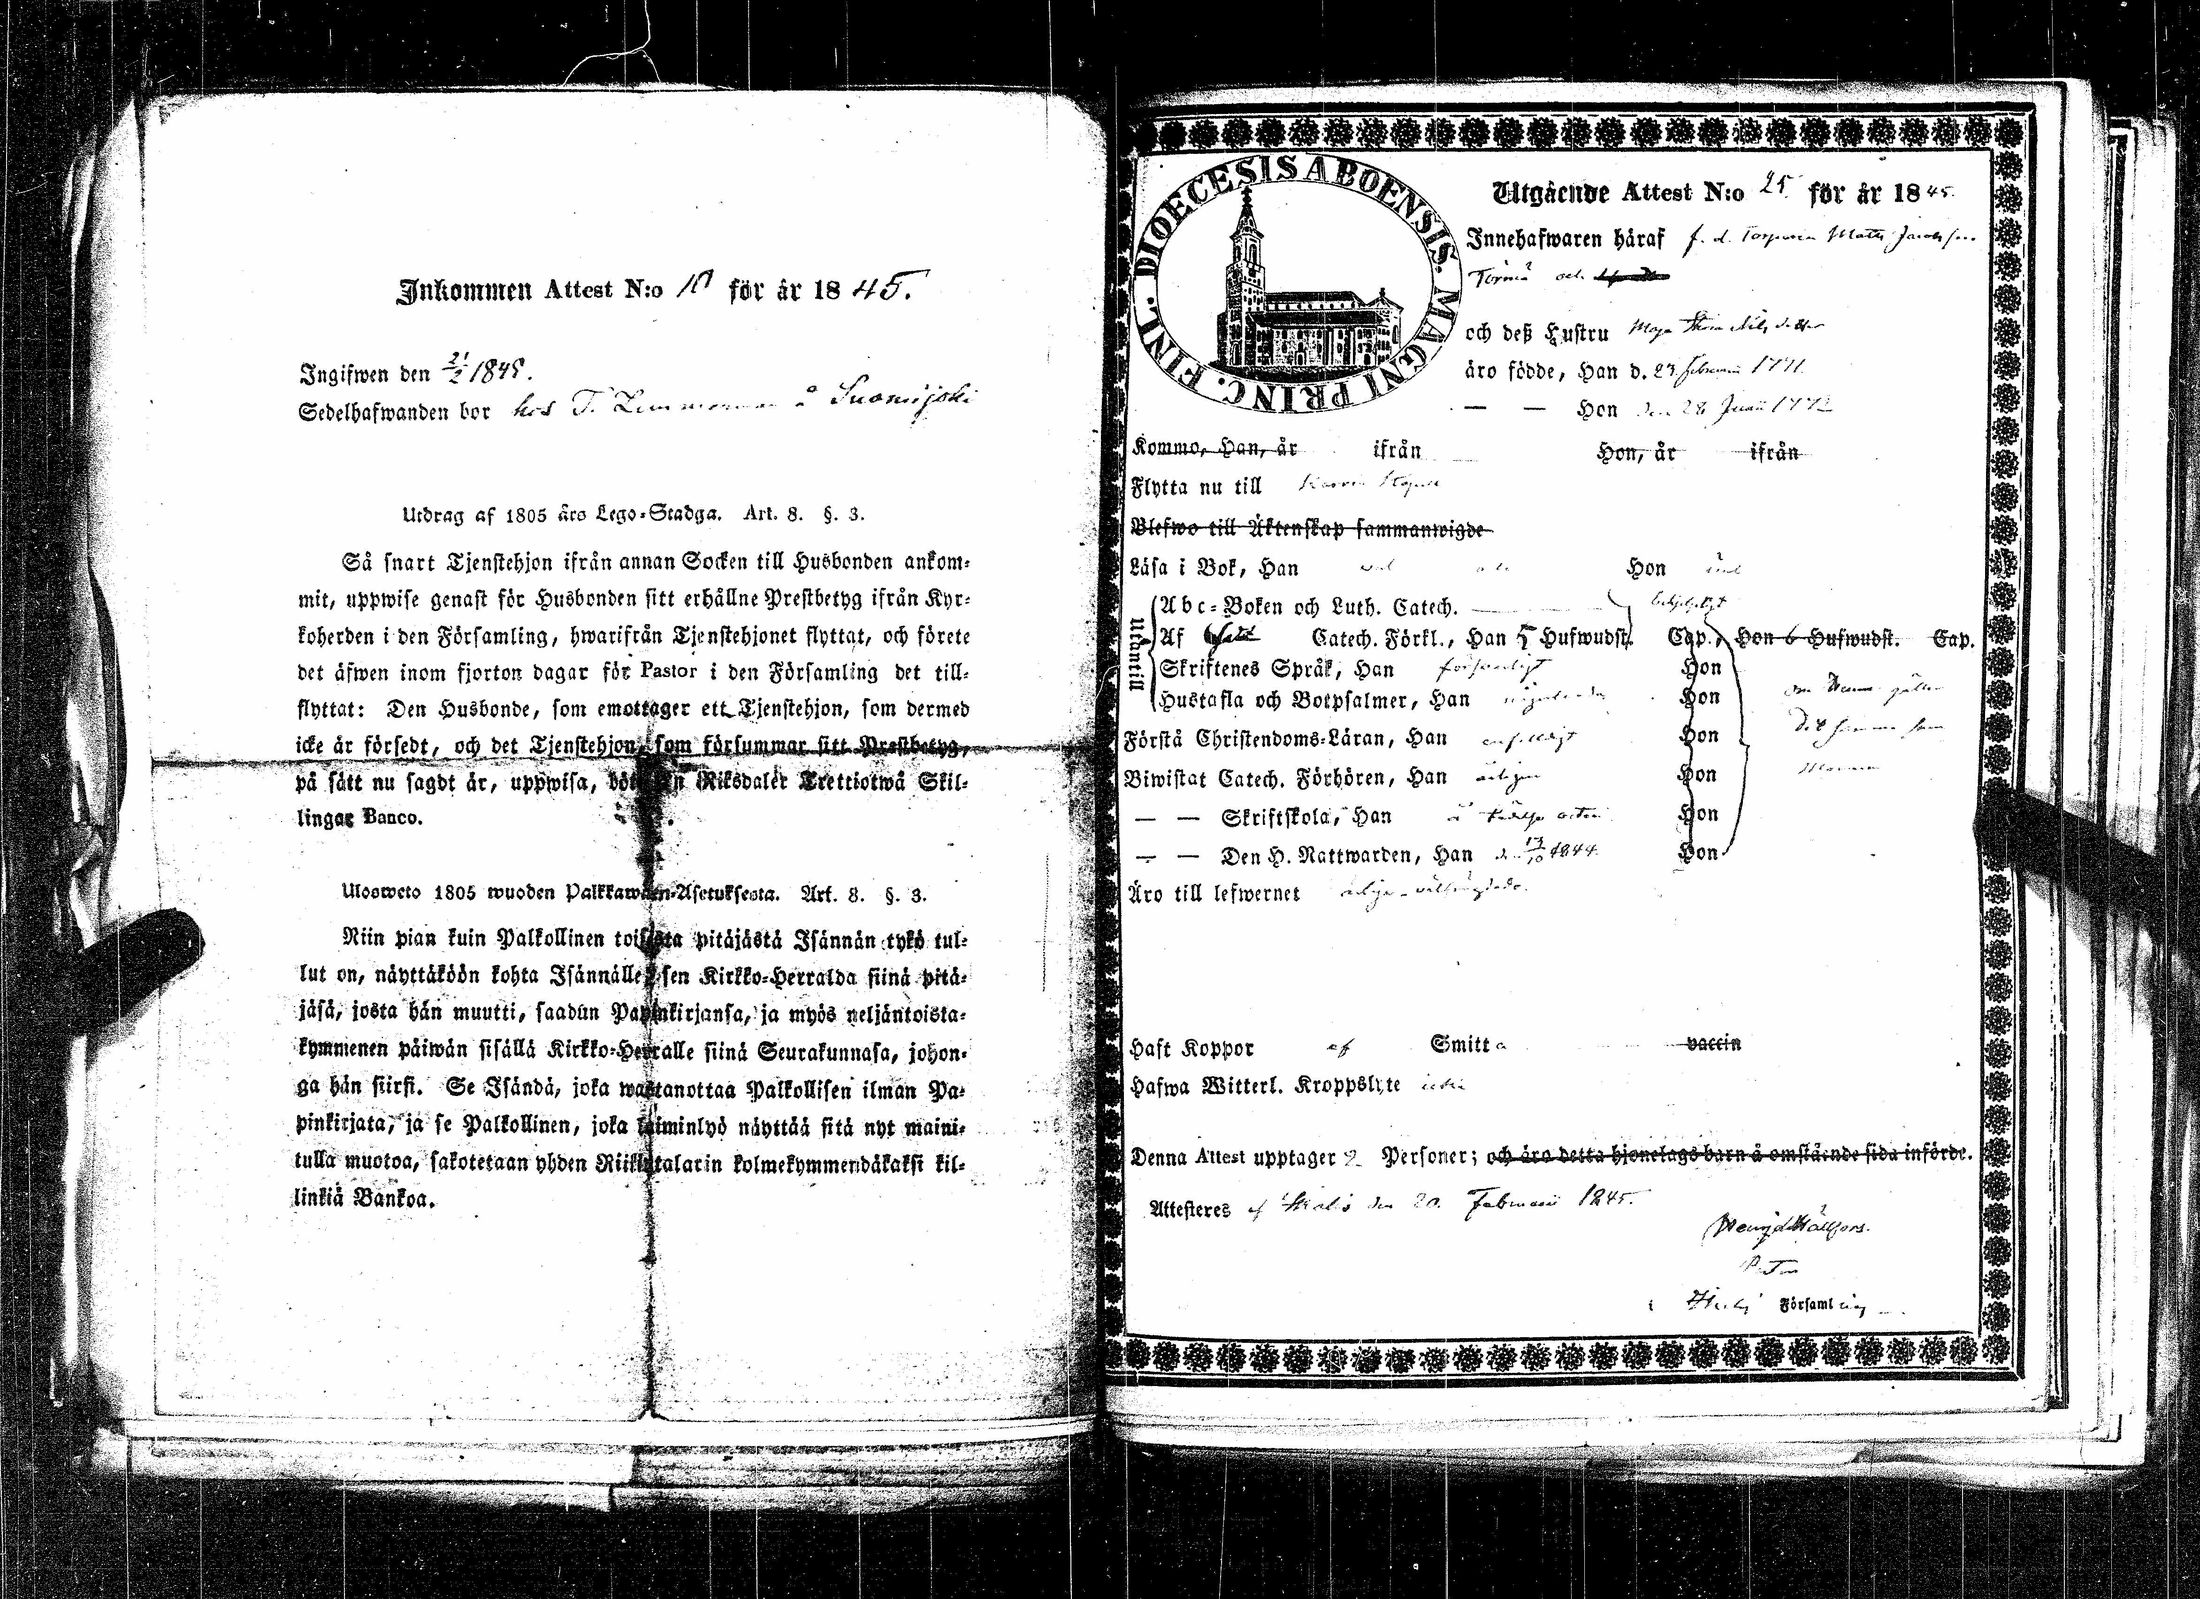 Inkommen Attest N:o för år 1845.
Ingifwen den 21/2 1845.
Sedelhafwanden bor hos T. å Suomijoki
Utdrag af 1805 års Lego-Stadga. Art. 8. §. 3.
Så snart Tjenstehjon ifrån annan Socken till Husbonden ankom-
mit, uppwise genast för Husbonden sitt erhållne Prestbetyg ifrån Kyr-
koherden i den Församling, hwarifrån Tjenstehjonet flyttat, och förete
det äfwen inom fjorton dagar för Pastor i den Församling det till-
flyttat: Den Husbonde, som emottager ett Tjenstehjon, som dermed
icke är försedt, och det Tjenstehjon, som försummar sitt Prestbetyg,
på sätt nu sagdt är, uppwisa, böte En Riksdaler Trettiotwå Skil-
lingar Banco.
Ulosweto 1805 wuoden Palkkawäen-Asetuksesta. Art. 8. §. 3.
Niin pian kuin Palkollinen toisesta pitäjästä Isännän tykö tul-
lut on, näyttäköön kohta Isännälle sen Kirkko-Herralda siinä pitä-
jäsä, josta hän muutti, saadun Papinkirjansa, ja myös neljäntoista-
kymmenen päiwän sisällä Kirkko-Herralle siinä Seurakunnasa, johon-
ga hän siirsi. Se Isändä, joka wastanottaa Palkollisen ilman Pa-
pinkirjata, ja se Palkollinen, joka laiminlyö näyttää sitä nyt maini-
tulla muotoa, sakotetaan yhden Riikintalarin kolmekymmendäkaksi kil-
linkiä Bankoa.
DIOECESIS ABOENSIS. MAGNI PRINC. FINL.
Utgående Attest N:o 25 för år 1845.
Innehafwaren häraf f. d. Torparen Matts Jacobsson
Törmä och
och deß Hustru Maja Nilsdotter
äro födde, Han d. 23 februarii 1771
— — Hon den 28 Junii 1772
Kommo, Han, år ifrån Hon, år ifrån
Flytta nu till
Blefwo till Äktenskap sammanwigde
Läsa i Bok, Han och Hon
Utantill
Abc-Boken och Luth. Catech. behjelpligt
Af Catech. Förkl., Han 5 Hufwudst. Cap., Hon 6 Hufwudst. Cap.
Skriftenes Språk, Han försvarligt Hon
Hustafla och Botpsalmer, Han Hon om gäller
Förstå Christendoms-Läran, Han enfaldigt Hon det samma som
Biwistat Catech. Förhören, Han årligen Hon Mannen
— — Skriftskola, Han Hon
— — Den H. Nattwarden, Han d. 13/10 1844. Hon
Äro till lefwernet
Haft Koppor ef Smitta vaccin
Hafwa Witterl. Kroppslyte icke
Denna Attest upptager 2 Personer; och äro detta hjonelags barn å omstående sida införde.
Attesteres af den 20. Februarii 1845.
Pastor
i Församling